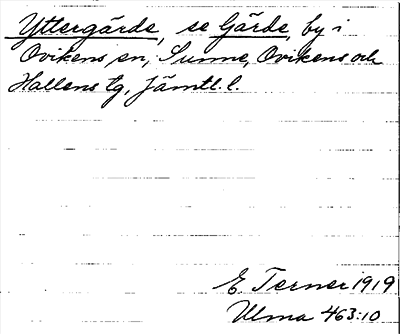 Yttergärde, se Gärde, by i
Ovikens sn, Sunne, Ovikens och
Hallens tg, Jämtl. l.
E. Terner 1919
Ulma 463:10